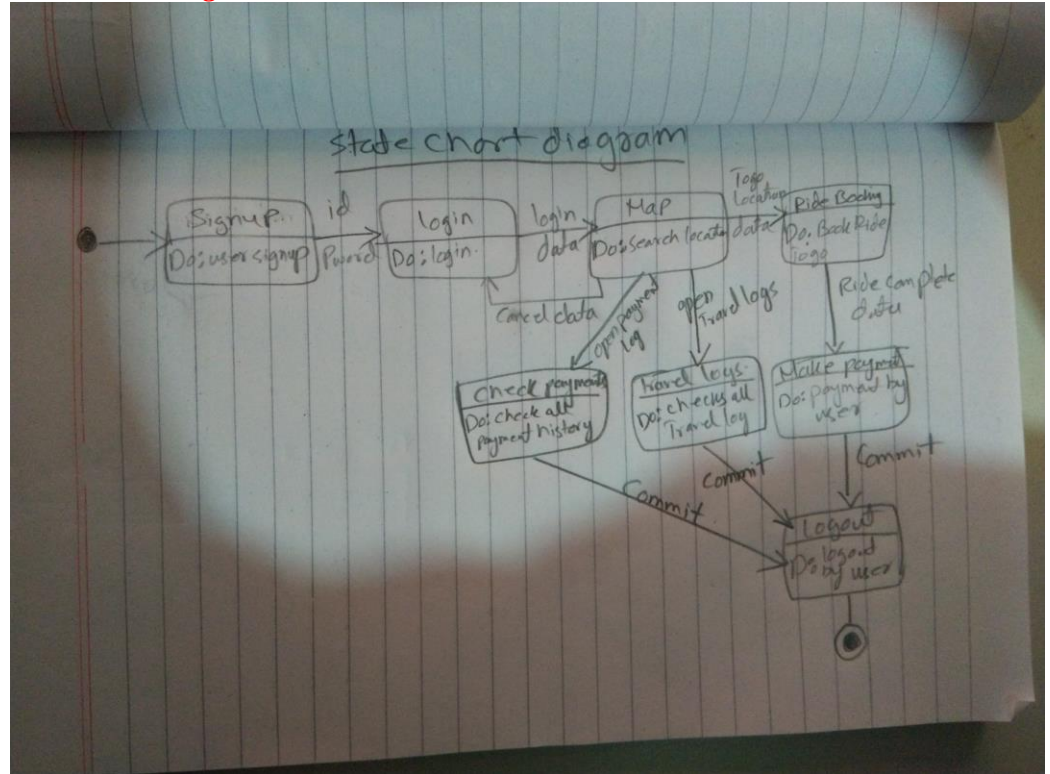 state chart diagram
Signup
Do: user signup
id
Pword
login
Do: login.
login
data
Map
Do: search locate
Togo
Location
data
Ride Booking
Do: Book Ride
Togo
Cancel data
open payment
log
open
Travel logs
Ride complete
data
check payments
Do: check all
payment history
travel logs.
Do: checks all
Travel log
Make payment
Do: payment by
user
Commit
Commit
Commit
Logout
Do: logout
by user